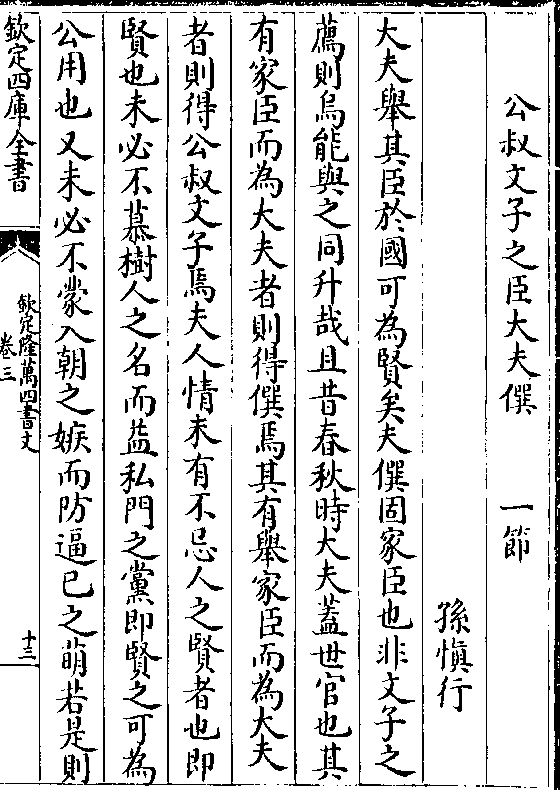 公叔文子之臣大夫僎　一節
孫慎行
大夫舉其臣於國可為賢矣夫僎固家臣也非文子之
薦則烏能與之同升哉且昔春秋時大夫蓋世官也其
有家臣而為大夫者則得僎焉其有舉家臣而為大夫
者則得公叔文子焉夫人情未有不忌人之賢者也即
賢也未必不慕樹人之名而益私門之黨即賢之可為
公用也又未必不蒙入朝之嫉而防逼己之萌若是則
欽定四庫全書
欽定隆萬四書文
卷三
十三